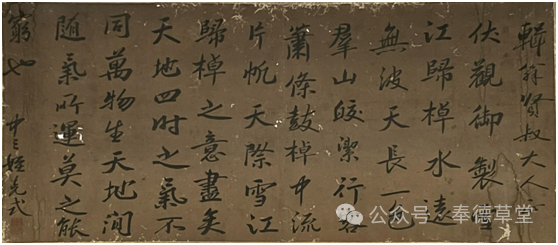 辑翁贤叔大人正
伏觀御製雪
江歸棹水遠
無波天長一色
羣山皎潔行客
蕭條鼓棹中流
片帆天際雪江
歸棹之意盡矣
天地四时之氣不
同萬物生天地间
随氣所運莫之能
窮也
公众号 · 奉德草堂